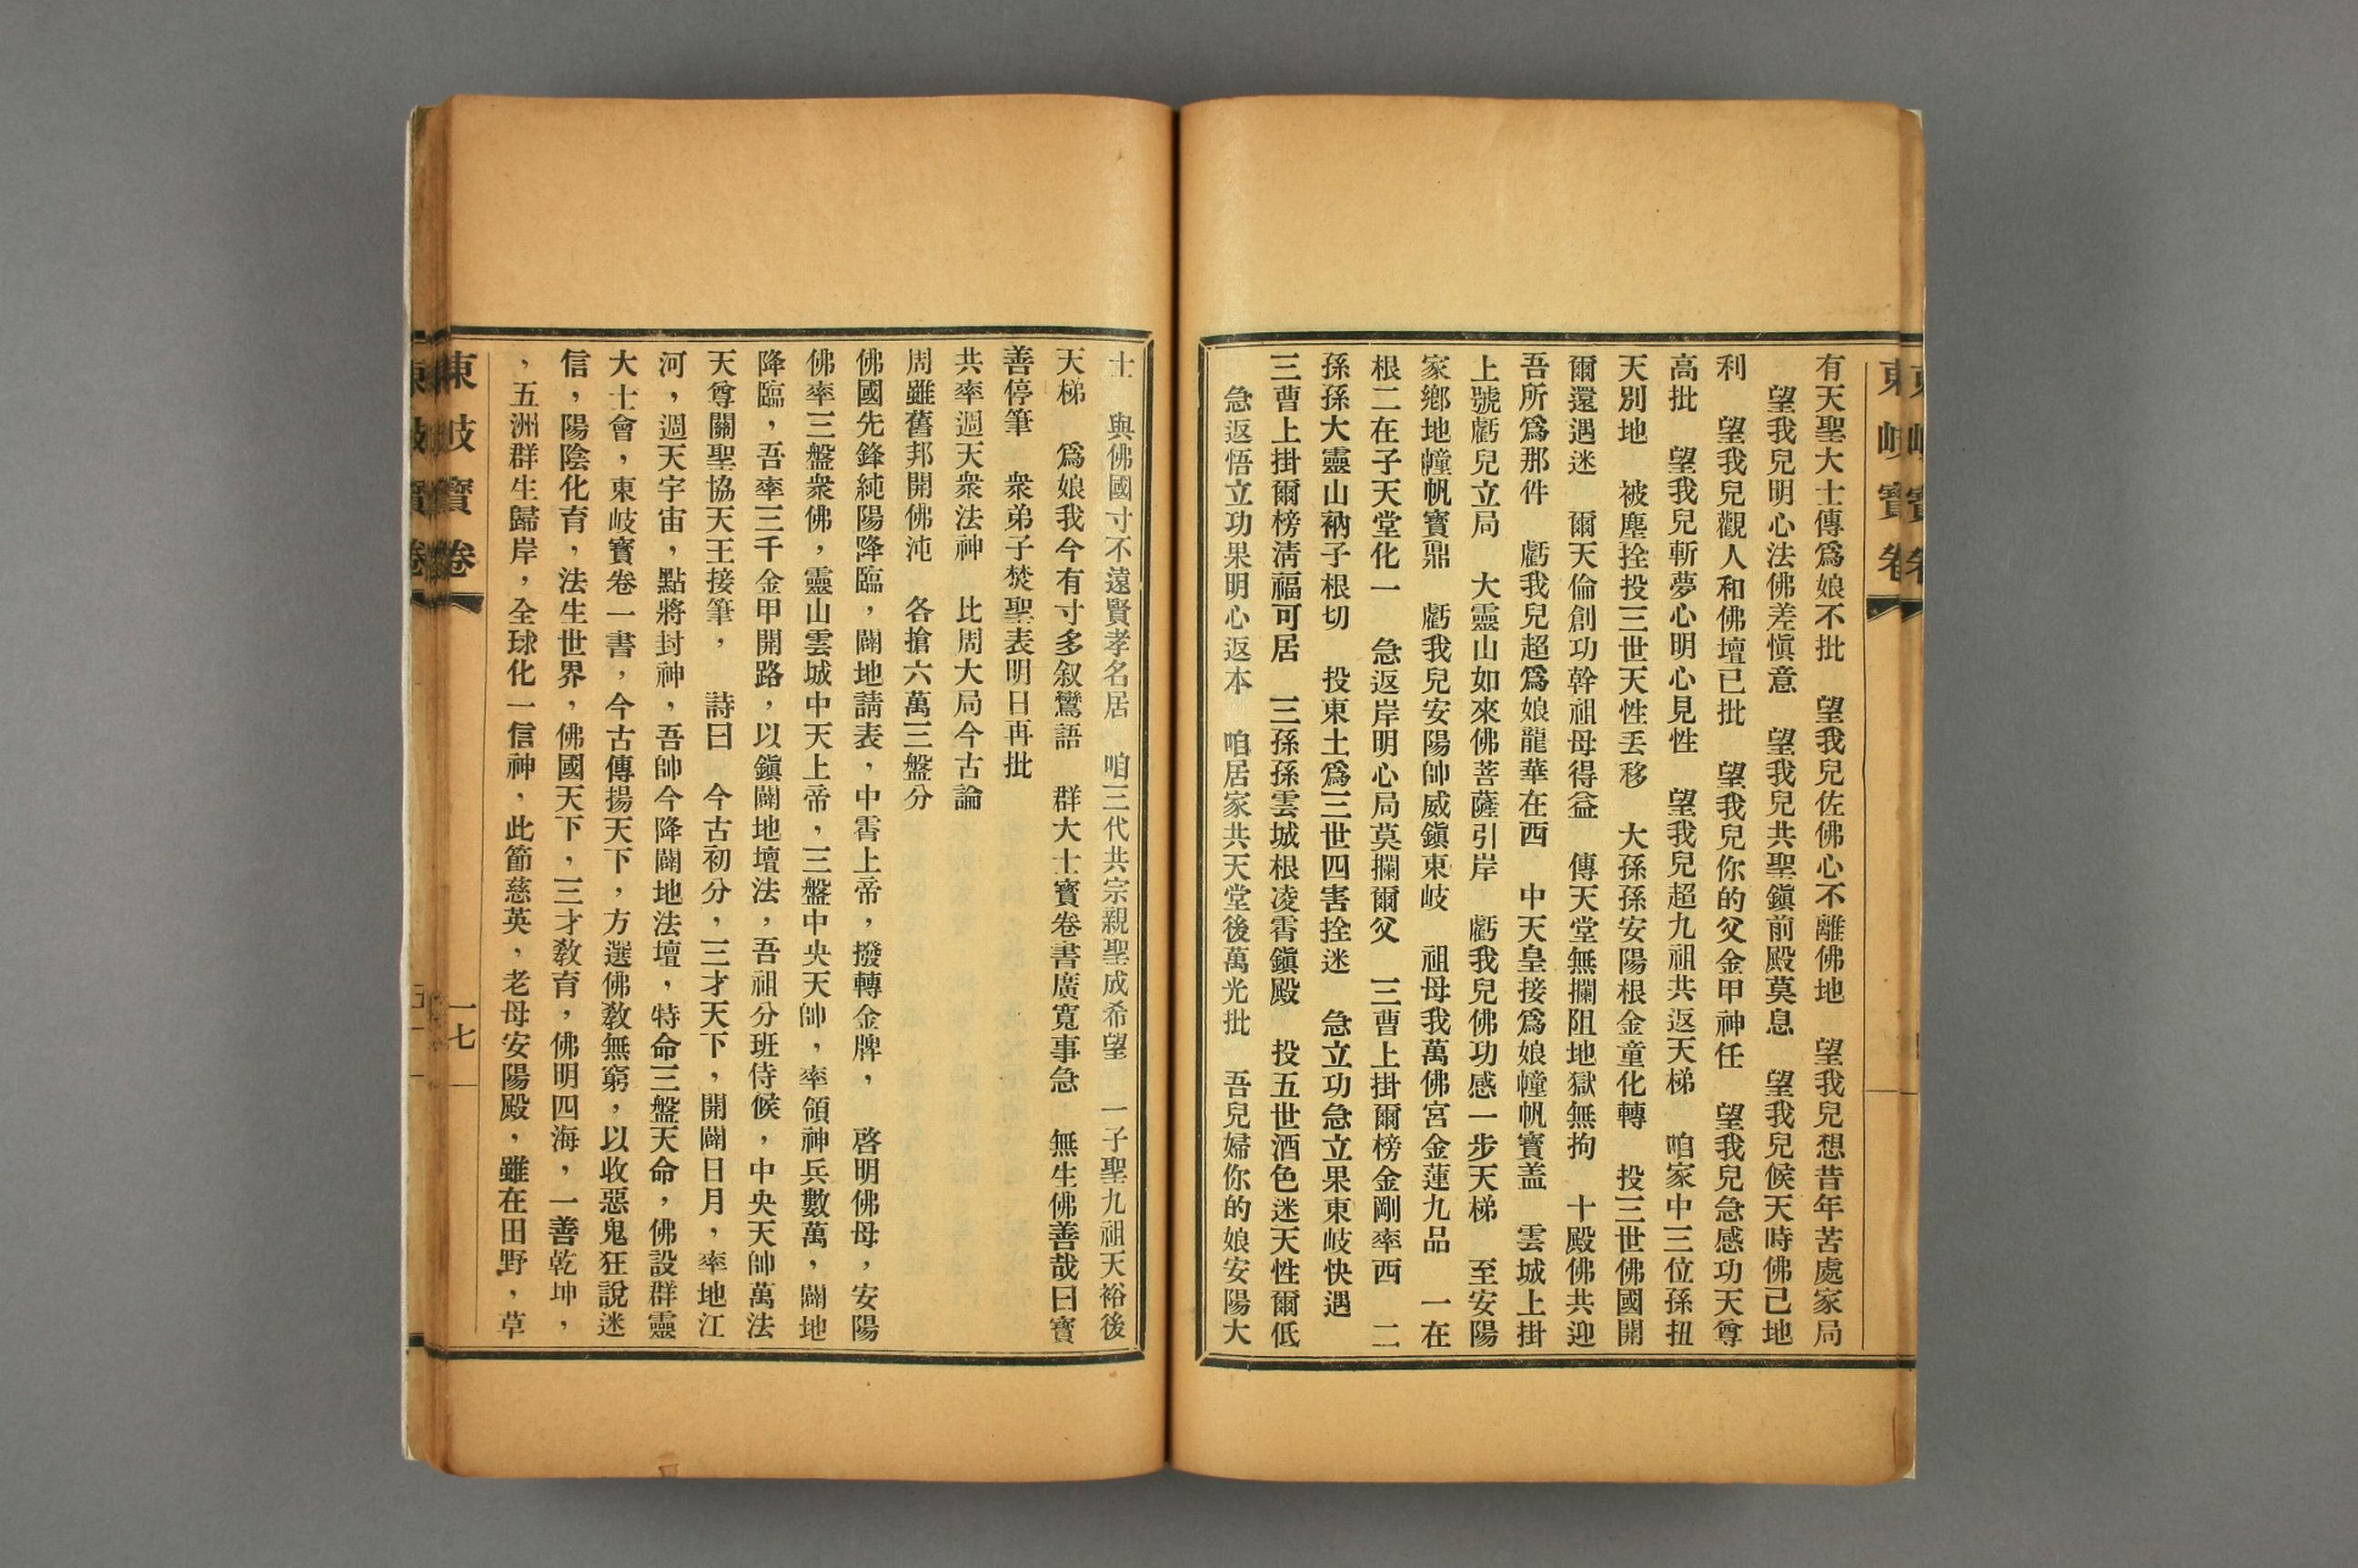 東岐寶卷
有天聖大士傳爲娘不批　望我兒佐佛心不離佛地　望我兒想昔年苦處家局
望我兒明心法佛差愼意　望我兒共聖鎭前殿莫息　望我兒候天時佛己地
利　望我兒觀人和佛壇已批　望我兒你的父金甲神任　望我兒急感功天尊
高批　望我兒斬夢心明心見性　望我兒超九祖共返天梯　咱家中三位孫扭
天別地　被塵拴投三世天性丢移　大孫孫安陽根金童化轉　投三世佛國開
爾還遇迷　爾天倫創功幹祖母得益　傳天堂無攔阻地獄無拘　十殿佛共迎
吾所爲那件　虧我兒超爲娘龍華在西　中天皇接爲娘幢帆寶盖　雲城上掛
上號虧兒立局　大靈山如來佛菩薩引岸　虧我兒佛功感一步天梯　至安陽
家鄉地幢帆寶鼎　虧我兒安陽帥威鎭東岐　祖母我萬佛宮金蓮九品　一在
根二在子天堂化一　急返岸明心局莫攔爾父　三曹上掛爾榜金剛率西　二
孫孫大靈山衲子根切　投東土爲三世四害拴迷　急立功急立果東岐快遇
三曹上掛爾榜淸福可居　三孫孫雲城根凌霄鎭殿　投五世酒色迷天性爾低
急返悟立功果明心返本　咱居家共天堂後萬光批　吾兒婦你的娘安陽大
士　與佛國寸不遠賢孝名居　咱三代共宗親聖成希望　一子聖九祖天裕後
天梯　爲娘我今有寸多叙鸞語　群大士寶卷書廣寬事急　無生佛善哉曰寶
善停筆　衆弟子焚聖表明日再批
共率週天衆法神　比周大局今古論
周雖舊邦開佛沌　各搶六萬三盤分
佛國先鋒純陽降臨，闢地請表，中霄上帝，撥轉金牌，　啓明佛母，安陽
佛率三盤衆佛，靈山雲城中天上帝，三盤中央天帥，率領神兵數萬，闢地
降臨，吾率三千金甲開路，以鎭闢地壇法，吾祖分班侍候，中央天帥萬法
天尊關聖協天王接筆，　詩曰　今古初分，三才天下，開闢日月，率地江
河，週天宇宙，點將封神，吾帥今降闢地法壇，特命三盤天命，佛設群靈
大士會，東岐寶卷一書，今古傳揚天下，方選佛敎無窮，以收惡鬼狂說迷
信，陽陰化育，法生世界，佛國天下，三才敎育，佛明四海，一善乾坤，
，五洲群生歸岸，全球化一信神，此節慈英，老母安陽殿，雖在田野，草
東岐寶卷
一七